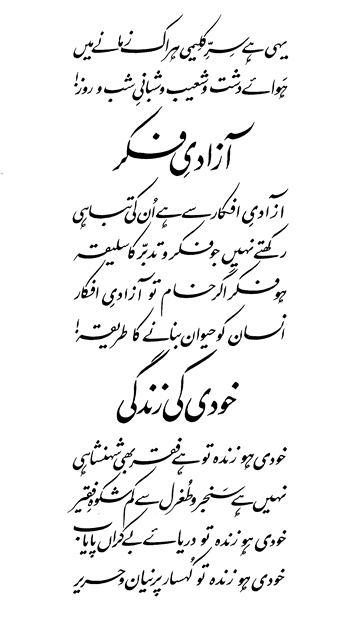 یہی ہے سرِّ کلیمی ہر اک زمانے میں
ہوائے دشت و شعیب و شبانیِ شب و روز!
آزادیِ فکر
آزادیِ افکار سے ہے اُن کی تباہی
رکھتے نہیں جو فکر و تدبّر کا سلیقہ
ہو فکر اگر خام تو آزادیِ افکار
انسان کو حیوان بنانے کا طریقہ!
خودی کی زندگی
خودی ہو زندہ تو ہے فقر بھی شہنشاہی
نہیں ہے سَنجر و طُغرل سے کم شکوہِ فقیر
خودی ہو زندہ تو دریائے بے کراں پایاب
خودی ہو زندہ تو کُہسار پرنیان و حریر